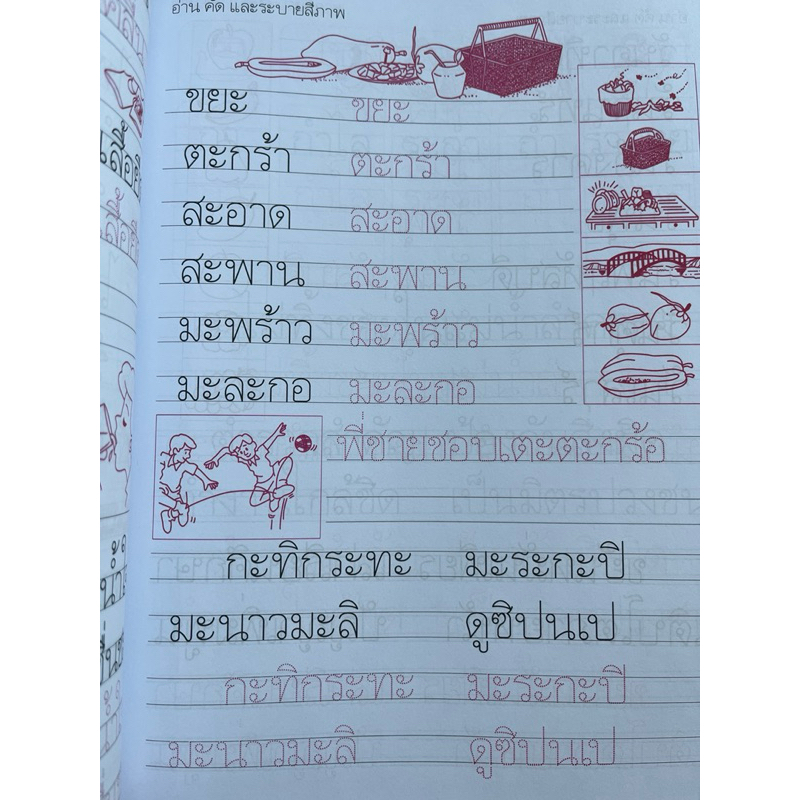 อ่าน คัด และระบายสีภาพ
ขยะ ขยะ
ตะกร้า ตะกร้า
สะอาด สะอาด
สะพาน สะพาน
มะพร้าว มะพร้าว
มะละกอ มะละกอ
พี่ชายชอบเตะตะกร้อ
กะทิกระทะ มะระกะปิ
มะนาวมะลิ ดูซิปนเป
กะทิกระทะ มะระกะปิ
มะนาวมะลิ ดูซิปนเป